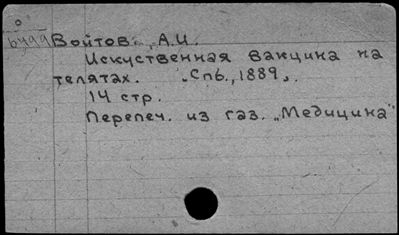 Войтов, А.И.
Искуственная вакцина на
телятах. Спб., 1889.
14 стр.
Перепеч. из газ. „Медицина"